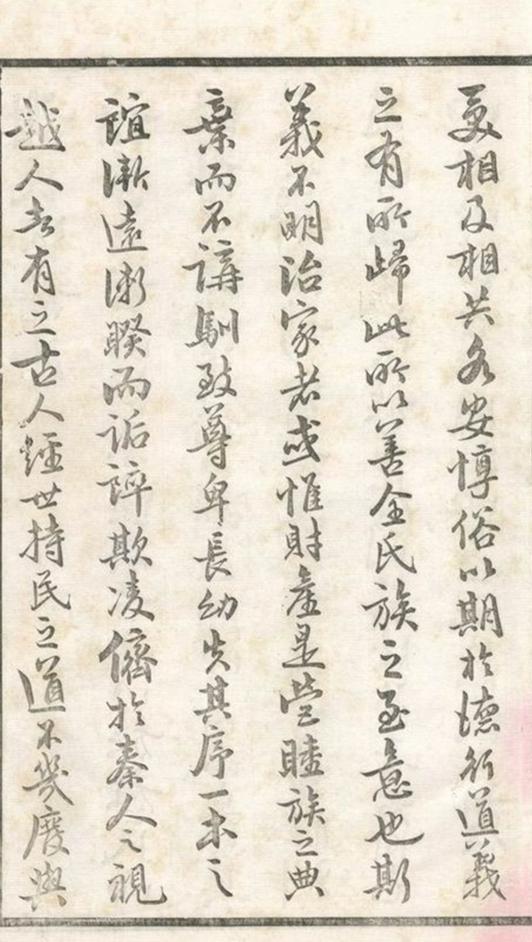 更相及相共各安惇俗以期於德行道義
之有所歸此所以善全氏族之至意也斯
義不明治家者或惟財產是營睦族之典
棄而不講馴致尊卑長幼失其序一本之
誼漸遠漸睽而詬誶欺凌儕於秦人之視
越人者有之古人經世持民之道不幾廢與